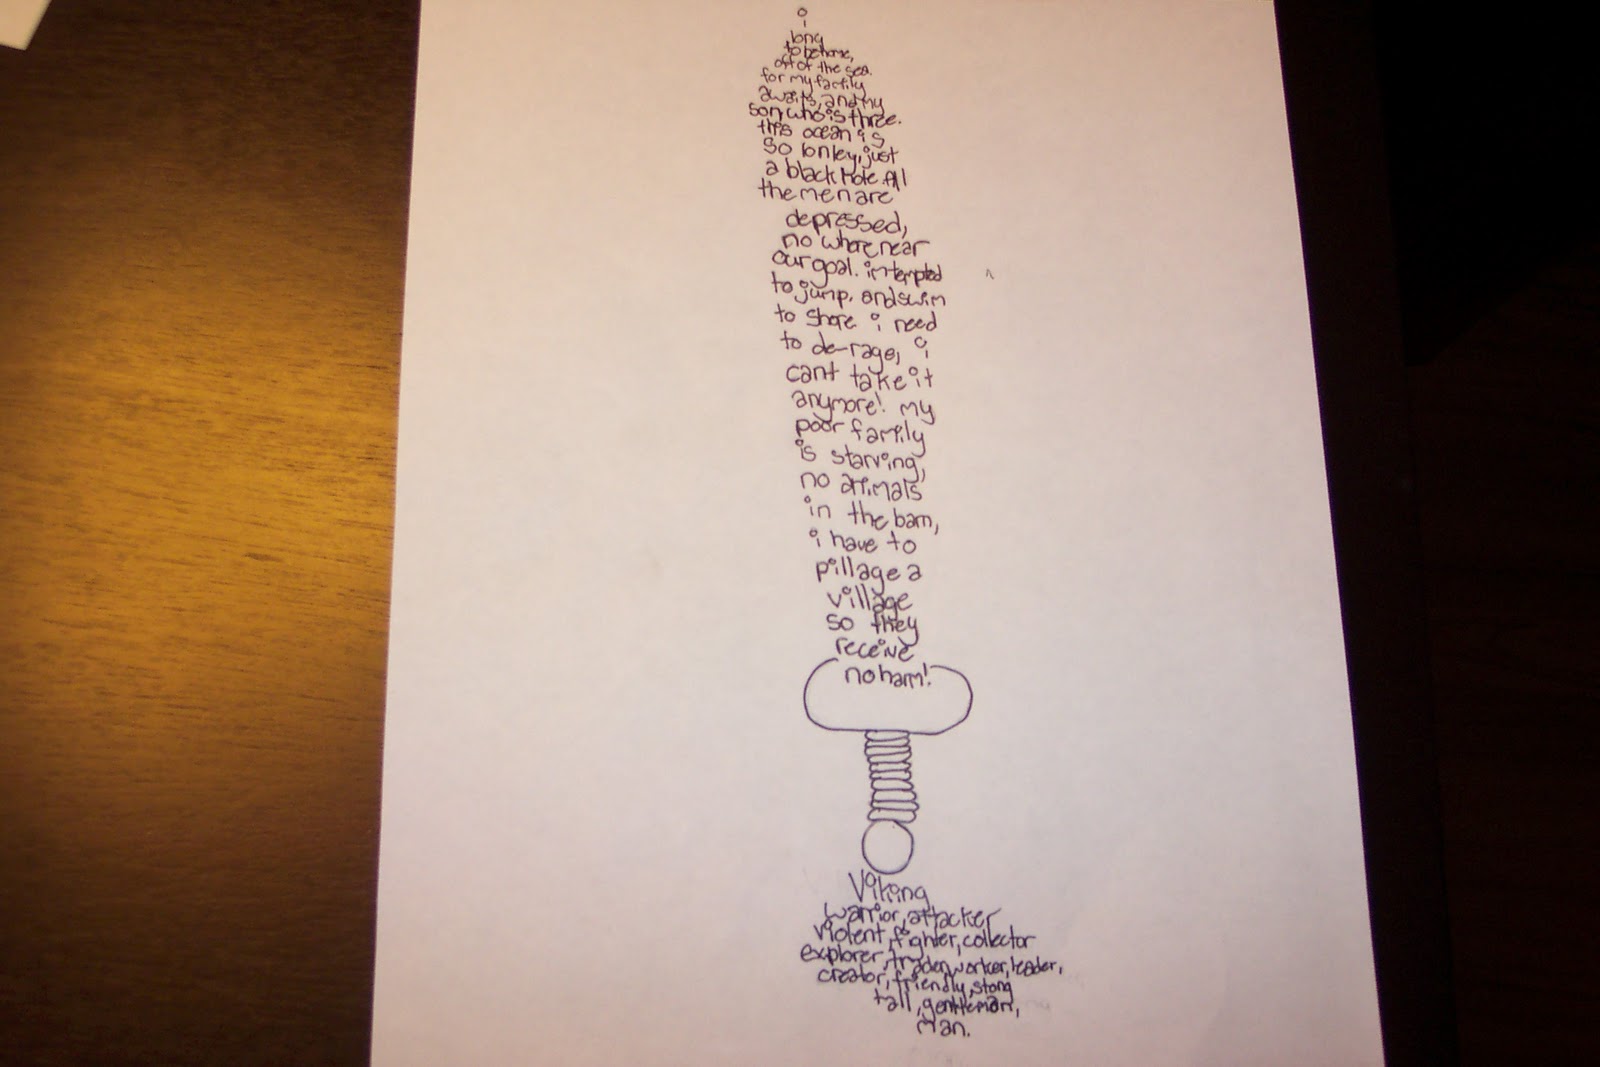 i
long
to be home,
off of the sea.
for my family
awaits, and my
son, who is three.
this ocean is
so lonley, just
a black hole. All
the men are
depressed,
no where near
our goal. im tempted
to jump. and swim
to shore i need
to de-rage, i
cant take it
anymore! my
poor family
is starving,
no animals
in the barn,
i have to
pillage a
village
so they
receive
no harm!
Viking
warrior, attacker
violent, fighter, collector
explorer, trader, worker, leader,
creator, friendly, stong
tall, gentleman,
man.